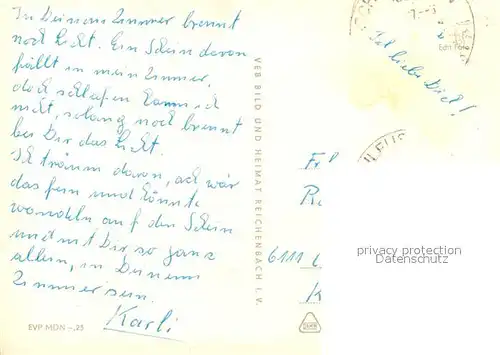 In Deinem Zimmer brennt
noch Licht. Ein Schein davon
fällt in mein Zimmer,
doch schlafen kann ich
nicht, solang noch brennt
bei Dir das Licht.
Ich träum davon, ach wär
das fein und könnte
wandeln auf den Schein
und mit Dir so ganz
allein, in Deinem
Zimmer sein.
Karli
EVP MDN -,25
VEB BILD UND HEIMAT REICHENBACH I. V.
Ich liebe Dich!
6111
privacy protection
Datenschutz